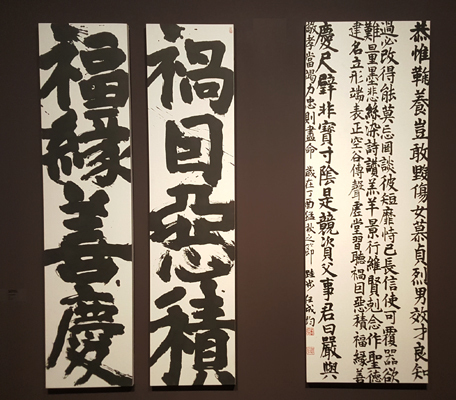 恭惟鞠養豈敢毀傷女慕貞烈男效才良知
過必改得能莫忘罔談彼短靡恃己長信使可覆器欲
難量墨悲絲染詩讚羔羊景行維賢剋念作聖德
建名立形端表正空谷傳聲虛堂習聽禍因惡積福緣善
慶尺璧非寶寸陰是競資父事君曰嚴與
敬孝當竭力忠則盡命 歲在丁酉
禍因惡積
福緣善慶